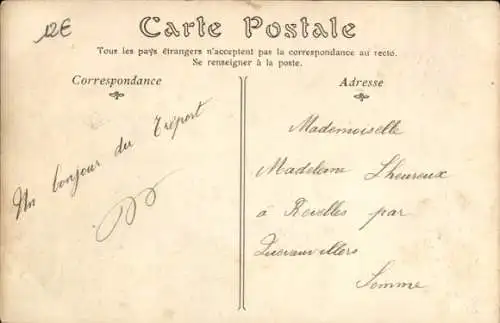 12€
Carte Postale
Tous les pays étrangers n'acceptent pas la correspondance au recto.
Se renseigner à la poste.
Correspondance
Adresse
Un bonjour du Tréport
Mademoiselle
Madeleine Lheureux
à Revelles par
Quevauvillers
Somme